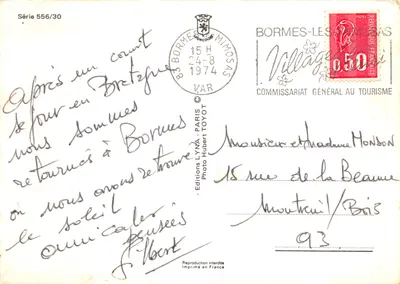 Série 556/30
Après un court
séjour en Bretagne
nous sommes
retournés à Bormes
où nous avons retrouvé
le soleil
amicales
pensées
Gilbert
- Editions LYNA - PARIS ©
Photo Hubert TOYOT
Reproduction interdite
Imprimé en France
83 BORMES-LES-MIMOSAS
15 H
24-8
1974
VAR
BORMES-LES-MIMOSAS
Village
COMMISSARIAT GÉNÉRAL AU TOURISME
0,50
Monsieur et Madame MONDON
15 rue de la Beaune
Montreuil/Bois
93.